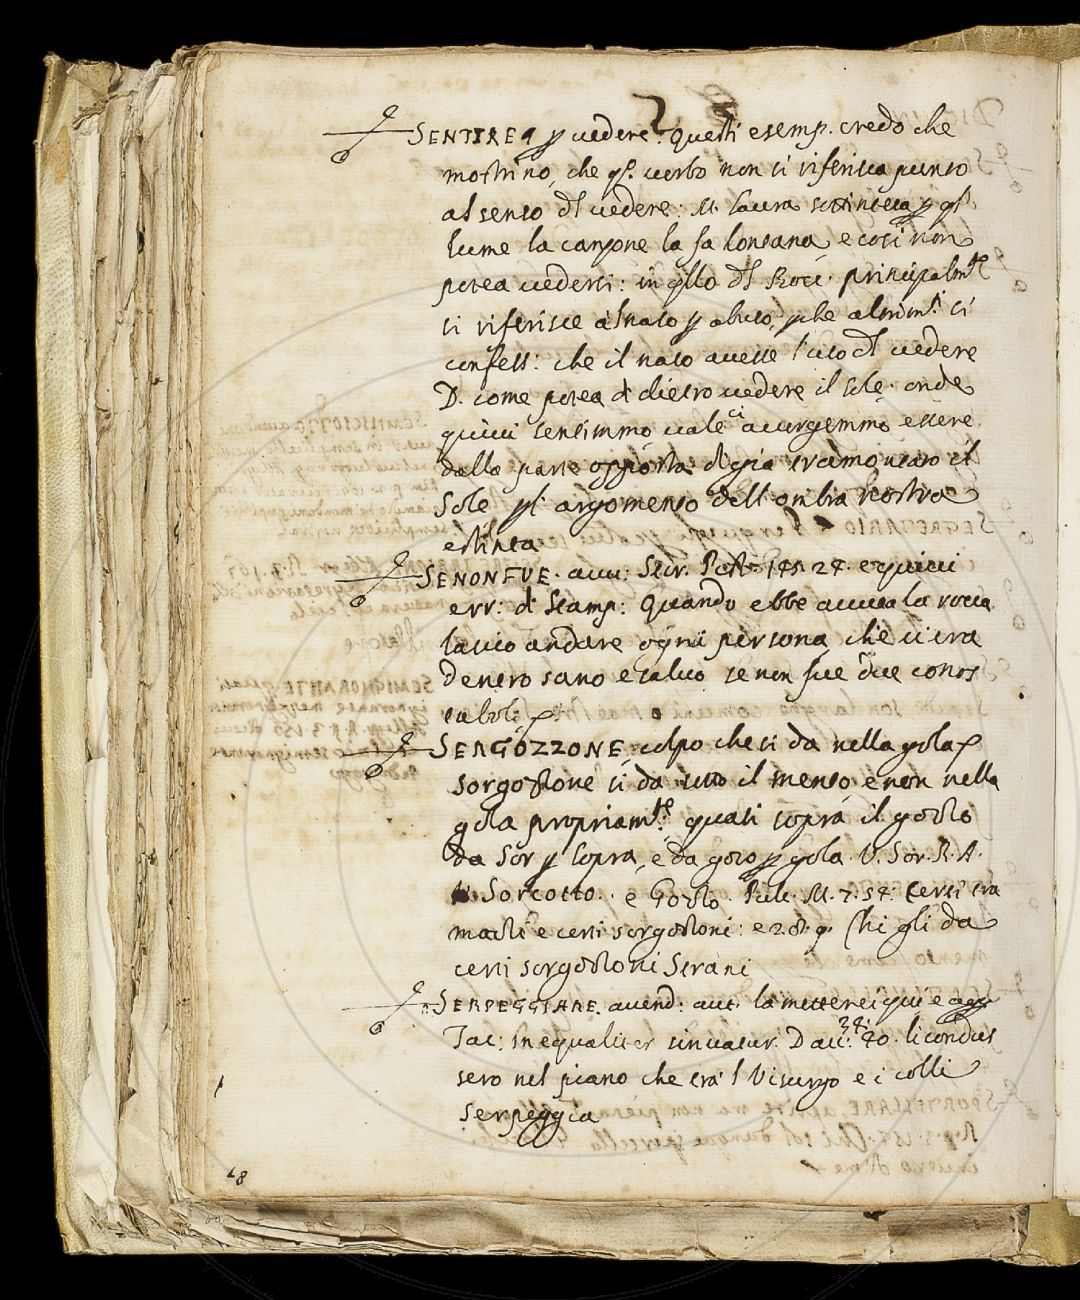 SENTIRE p vedere. Questi esemp. credo che
mostrino, che qo. verbo non si riferisca punto
al senso dl vedere: M. Laura sottintesa p qo
lume la canzone la fa lontana, e così non
potea vedersi: in qllo dl Bocc. principalmte
si riferisce al naso p abuso, pche altrimti. si
confess: che il naso avesse l'uso dl vedere
D. come potea di dietro vedere il sole. onde
quivi sentimmo vale ci accorgemmo essere
dalla parte opposta di già tramontato il
Sole pl' argomento dell' ombra nostra
estinta
SENONFUE. avv: Stor. Pist. 145. 24. e quivi
err: di Stamp: Quando ebbe avuta la rocca
lascio andare ogni persona che v'era
dentro sano e salvo se non fue due cones
taboli
SERGOZZONE, colpo che si da nella gola
sorgozzone si da sotto il mento, e non nella
gola propriamte. quasi sopra il gozzo
da Sor p sopra, e da gozo p gola. V. Sor. R. A.
V. Sorcotto. e Gozzo. Pule. M. 7. 54: Certi tra
mazzi e certi sorgozzoni: e 28. 9. Chi gli da
certi sorgozzoni strani
SERPEGGIARE. avend: aut. la mette rei qui e agg
Tac: inequaliter sinuatur. Dav. 34. 40. li condus
sero nel piano che tra 'l Visurgo e i colli
serpeggia